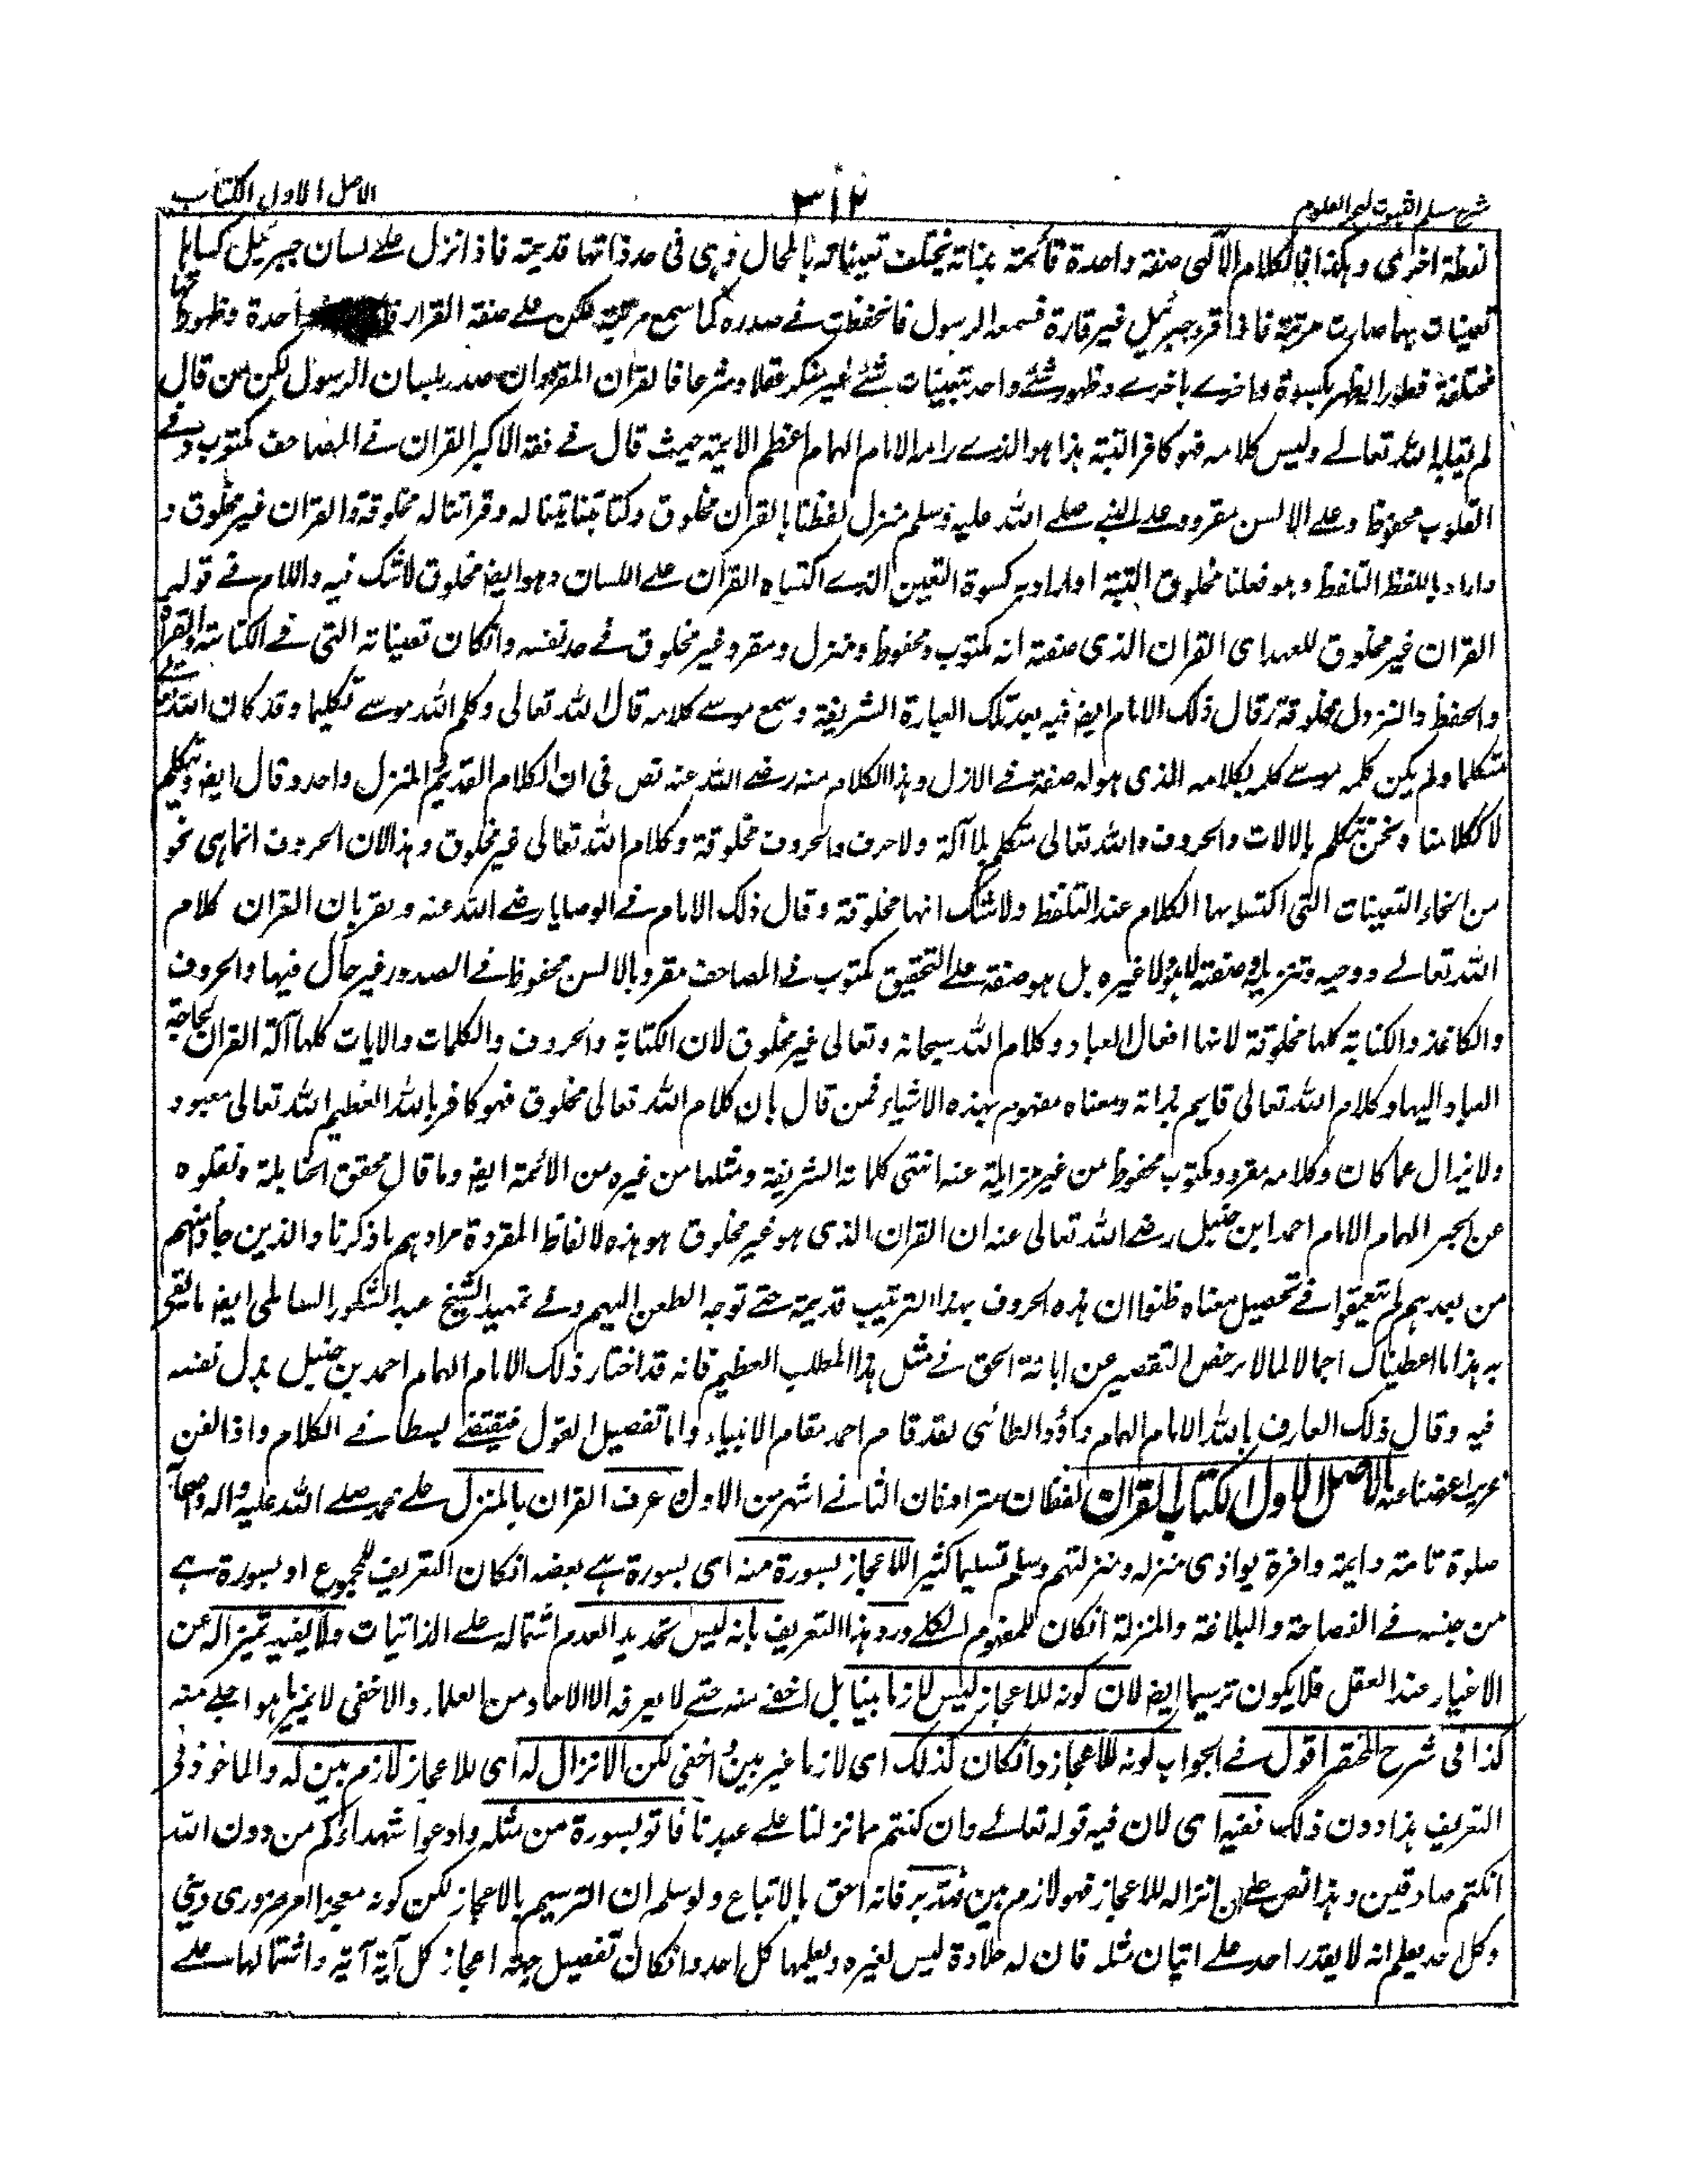 شرح مسلم الثبوت لبحر العلوم
٣١٢
الاصل الاول الكتاب
لفظة اخرى وهكذا فالكلام الآلهى صفة واحدة قائمة بذاته يختلف تعيناته بالمحال وهى فى حد ذاتها قديمة فاذا نزل على لسان جبرئيل كساها
تعينات بها صارت مرتبة فاذا قرء جبرئيل غير قارة فسمعه الرسول فانحفظت فى صدره كما سمع مرتبة لكن على صفة القرار واحدة وظهورها
مختلفة فطورا يظهر بكسوة واخرى باخرى وظهور شئ واحد بتعينات شتى غير منكر عقلا وشرعا فالقران المقرو وان صدر بلسان الرسول لكن من قال
لم يقله الله تعالى وليس كلامه فهو كافر البتة هذا هو الذى رامه الامام الهمام اعظم الايمة حيث قال فى فقه الاكبر القران فى المصاحف مكتوب وفى
القلوب محفوظ وعلى الالسن مقرو وعلى النبى صلى الله عليه وسلم منزل لفظنا بالقران مخلوق وكتابتنا له وقرائتنا له مخلوقة والقران غير مخلوق و
واراد باللفظ التلفظ وهو فعلنا مخلوق البتة او اراد به كسوة التعين الذى اكتساه القران على اللسان وهو ايضا مخلوق لا شك فيه واللام فى قوله
القران غير مخلوق للعهد اى القران الذى صفته انه مكتوب ومحفوظ ومنزل ومقرو غير مخلوق فى حد نفسه وانكان تعيناته التى فى الكتابة والقراءة
والحفظ والنزول مخلوقة وقال ذلك الامام ايضا فيه بعد تلك العبارة الشريفة وسمع موسى كلامه قال الله تعالى وكلم الله موسى تكليما وقد كان الله تعالى
متكلما ولم يكن كلمه موسى كلمه بكلامه الذى هو له صفة فى الازل وهذا الكلام منه رضى الله عنه نص فى ان الكلام القديم المنزل واحد وقال ايضا ويتكلم
لا ككلامنا ونحن نتكلم بالالات والحروف والله تعالى متكلم بلا آلة ولا حرف والحروف مخلوقة وكلام الله تعالى غير مخلوق وهذا لان الحروف انما هى نحو
من انحاء التعينات التى اكتسى بها الكلام عند التلفظ ولا شك انها مخلوقة وقال ذلك الامام فى الوصايا رضى الله عنه ونقر بان القران كلام
الله تعالى ووحيه وتنزيله وصفته لا هو ولا غيره بل هو صفة على التحقيق مكتوب فى المصاحف مقرو بالالسن محفوظ فى الصدور غير حال فيها والحروف
والكاغذ والكتابة كلها مخلوقة لانها افعال العباد وكلام الله سبحانه وتعالى غير مخلوق لان الكتابة والحروف والكلمات والايات كلها آلة القران لحاجة
العباد اليها وكلام الله تعالى قايم بذاته ومعناه مفهوم بهذه الاشياء فمن قال بان كلام الله تعالى مخلوق فهو كافر بالله العظيم الله تعالى معبود
ولا يزال عما كان وكلامه مقرو ومكتوب محفوظ من غير مزايلة عنه انتهى كلماته الشريفة ومثلها من غيره من الائمة ايضا وما قال محقق الحنابلة ونقلوه
عن الحبر الهمام الامام احمد ابن حنبل رضى الله تعالى عنه ان القران الذى هو غير مخلوق هو هذه لالفاظ المقروة مرادهم ما ذكرنا والذين جاؤا منهم
من بعدهم لم يتعمقوا فى تحصيل معناه ظنوا ان هذه الحروف بهذا الترتيب قديمة حتى توجه الطعن اليهم وفى تمهيد الشيخ عبد الشكور السالمى ايضا ما يقى
به هذا ما اعطيناك اجمالا لما لا رخص التقصير عن ابانة الحق فى مثل هذا المطلب العظيم فانه قد اختار ذلك الامام الهمام احمد بن حنبل بذل نفسه
فيه وقال ذلك العارف بالله الامام الهمام داؤد الطائى لقد قام احمد مقام الانبياء واما تفصيل القول فيقتضى بسطا فى الكلام واذ الفن
غريب اعرضنا عنه الاصل الاول الكتاب القران لفظان مترادفان الثانى اشهر من الاول عرف القران بالمنزل على محمد صلى الله عليه واله واصحابه
صلوة تامة دايمة وافرة يوازى منزله ومنزلتهم وسلم تسليما كثيرا للاعجاز بسورة منه اى بسورة هى بعضه انكان التعريف للمجموع او بسورة هى
من جنسه فى الفصاحة والبلاغة والمنزلة انكان للمفهوم الكلى ورد هذا التعريف بانه ليس تحديد العدم اشتماله على الذاتيات ولا يفيد تميزا له عن
الاغيار عند العقل فلا يكون ترسيما ايضا لان كونه للاعجاز ليس لازما بينا بل اخفى منه حتى لا يعرفه الا الاحاد من العلماء والاخفى لا يميز ما هو اجلى منه
كذا فى شرح المختصر اقول فى الجواب كونه للاعجاز وانكان كذلك اى لازما غير بين اخفى لكن الانزال له اى للاعجاز لازم بين له والماخوذ فى
التعريف هذا دون ذلك ففيه اى لان فيه قوله تعالى وان كنتم مما نزلنا على عبدنا فاتو بسورة من مثله وادعوا شهداءكم من دون الله
انكنتم صادقين وهذا نص على ان انزاله للاعجاز فهو لازم بين فتدبر فانه احق بالاتباع ولو سلم ان الترسيم بالاعجاز لكن كونه معجزا امر ضرورى دينى
وكل احد يعلم انه لا يقدر احد على اتيان مثله فان له حلاوة ليس لغيره ويعلمها كل احد وانكان تفصيل جهة اعجاز كل آية آية واشتمالها على